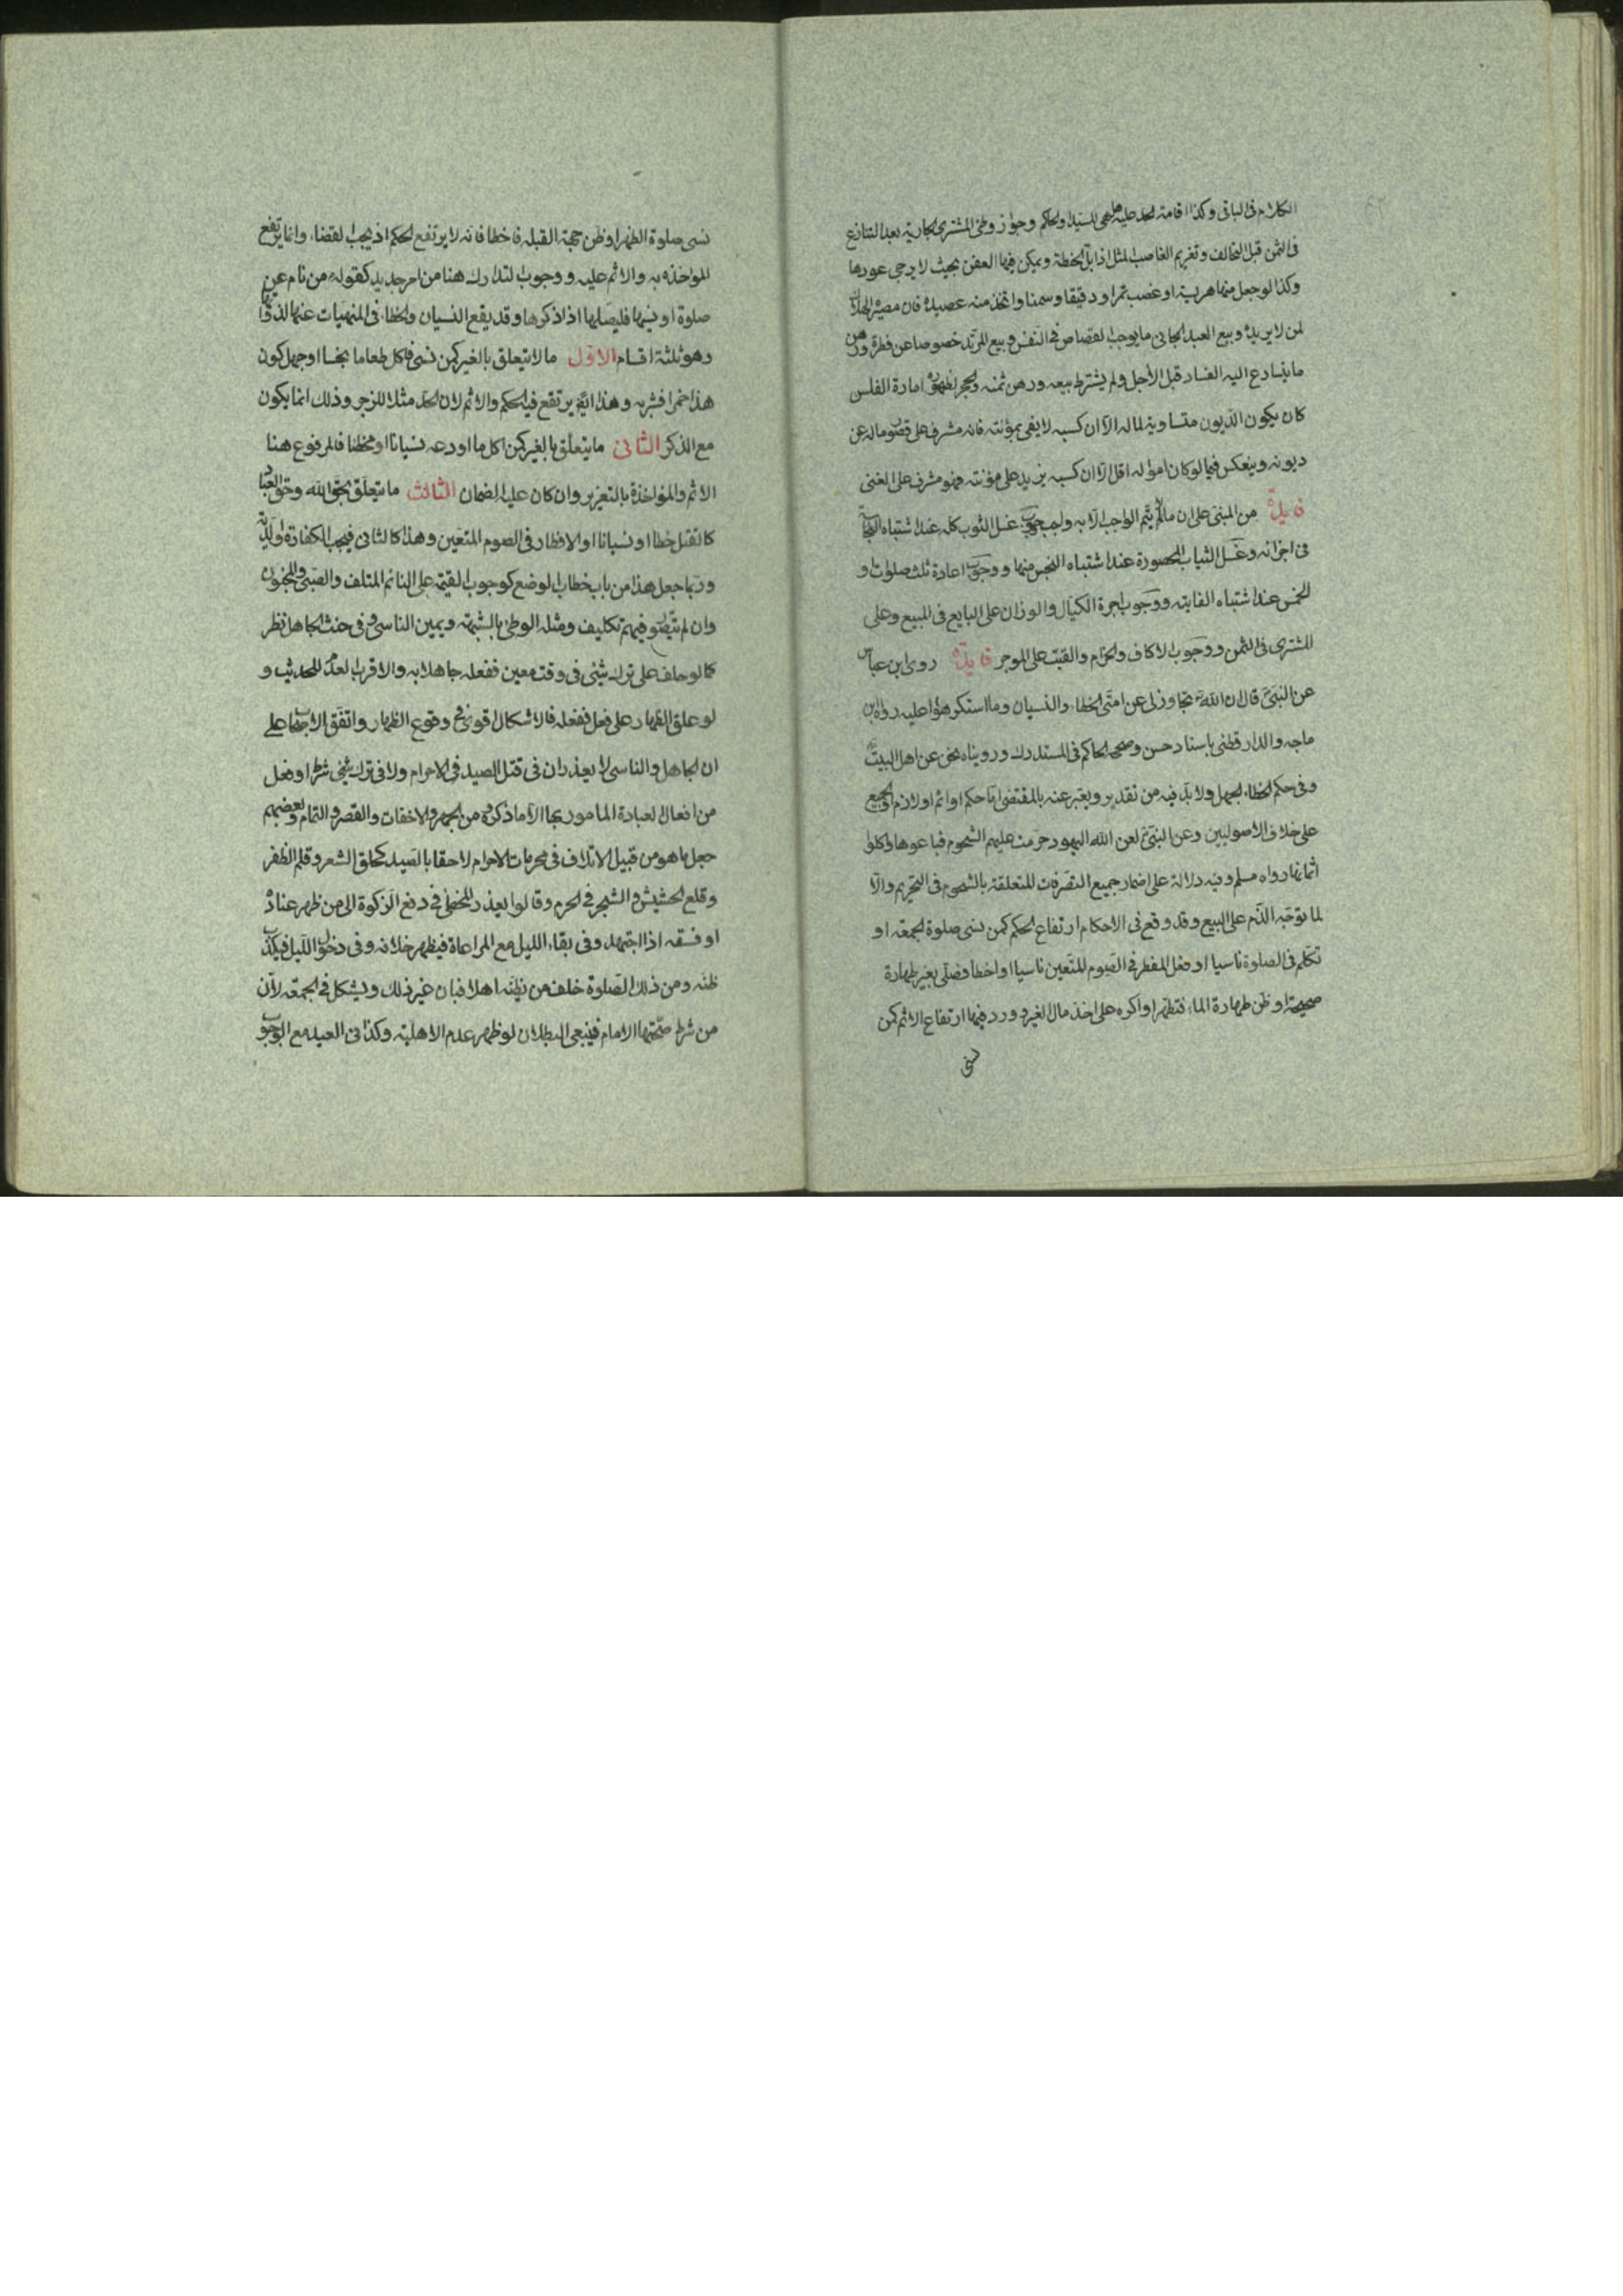 الكلام فى الباقى وكذا اقامة الحد عليه هل هى للسيد او للحاكم وجواز وطئ المشترى الجارية بعد التنازع
فى الثمن قبل التحالف وتغريم الغاصب المثل اذا بل الحنطة وتمكن فيها العفن بحيث لا يرجى عودها
وكذا لو جعل منها هريسة او غصب تمرا ودقيقا وسمنا واتخذ منه عصيدة فان مصيره الهلاك
لمن لا يريده وبيع العبد الجانى ما يوجب القصاص فى النفس وبيع المرتد خصوصا عن فطرة ورهن
ما يتسارع اليه الفساد قبل الأجل ولم يشترط بيعه ورهن ثمنه والحجر لظهور امارة الفلس
كان يكون الديون متساوية لماله الا ان كسبه لا يفى بمؤنته فانه مشرف على قصور ماله عن
ديونه وينعكس فيما لو كان امواله اقل الا ان كسبه يزيد على مؤنته فهو مشرف على الغنى
فايدة من المبنى على ان ما لا يتم الواجب الا به واجب وجوب غسل الثوب كله عند اشتباه النجاسة
فى اجزائه وغسل الثياب المحصورة عند اشتباه النجس منها ووجوب اعادة ثلث صلوات و
الخمس عند اشتباه الفايتة ووجوب اجرة الكيال والوزان على البايع فى المبيع وعلى
المشترى فى الثمن ووجوب الاكاف والحزام والقتب على الموجر فايدة روى ابن عباس
عن النبى قال ان الله تجاوز لى عن امتى الخطاء والنسيان وما استكرهوا عليه رواه ابن
ماجه والدار قطنى باسناد حسن وصححه الحاكم فى المستدرك ورويناه نحن عن اهل البيت
وفى حكم الخطاء الجهل ولا بد فيه من تقدير ويعبر عنه بالمقتضى اما حكم او اثم او لازم او الجميع
على خلاف الاصوليين وعن النبى لعن الله اليهود حرمت عليهم الشحوم فباعوها واكلوا
اثمانها رواه مسلم وفيه دلالة على اضمار جميع التصرفات المتعلقة بالشحوم فى التحريم والا
لما توجه الذم على البيع وقد وقع فى الاحكام ارتفاع الحكم كمن نسى صلوة الجمعة او
تكلم فى الصلوة ناسيا او فعل المفطر فى الصوم المتعين ناسيا او اخطا فصلى بغير طهارة
صحيحة او ظن طهارة الماء فتطهر او اكره على اخذ مال الغير وورد فيها ارتفاع الاثم كمن
نسى
نسى صلوة الظهر او ظن جهة القبلة فاخطا فانه لا يرتفع الحكم اذ يجب القضاء وانما يرتفع
المواخذه به والاثم عليه ووجوب التدارك هنا من امر جديد كقوله من نام عن
صلوة او نسيها فليصلها اذا ذكرها وقد يقع النسيان والخطاء فى المنهيات عنها لذواتها
وهو ثلثة اقسام الاول ما لا يتعلق بالغير كمن نسى فاكل طعاما نجسا او جهل كون
هذا خمرا فشربه وهذا ايض يرتفع فيه الحكم والاثم لان الحد مثلا للزجر وذلك انما يكون
مع الذكر الثانى ما يتعلق بالغير كمن اكل ما اودعه نسيانا او مخطئا فالمرفوع هنا
الاثم والمؤاخذة بالتعزير وان كان عليه الضمان الثالث ما يتعلق بحق الله وحق العباد
كالقتل خطا او نسيانا او الافطار فى الصوم المتعين وهذا كالثانى فيجب الكفارة والدية
وربما جعل هذا من باب خطاب الوضع كوجوب القيمة على النائم المتلف والصبى والمجنون
وان لم يتصور فيهم تكليف ومثله الوطئ بالشبهة ويمين الناسى وفى حنث الجاهل نظر
كما لو حلف على ترك شئ فى وقت معين ففعله جاهلا به والاقرب العدم للحديث و
لو علق الظهار على فعل ففعله فالاشكال اقوى فى وقوع الظهار واتفق الاصحاب على
ان الجاهل والناسى لا يعذران فى قتل الصيد فى الاحرام ولا فى ترك شئ شرط او فعل
من افعال العبادة المامور بها الا ما ذكروه من الجهر والاخفات والقصر والتمام وبعضهم
جعل ما هو من قبيل الاتلاف فى محرمات الاحرام لاحقا بالصيد كحلق الشعر وقلم الظفر
وقلع الحشيش والشجر فى الحرم وقالوا يعذر المخطئ فى دفع الزكوة الى من ظهر غناه
او فسقه اذا اجتهد وفى بقاء الليل مع المراعاة فيظهر خلافه وفى دخول الليل فيكذب
ظنه ومن ذلك الصلوة خلف من يظنه اهلا فبان غير ذلك ويشكل فى الجمعة لان
من شرط صحتها الامام فينبغى البطلان لو ظهر عدم الاهلية وكذا فى العيد مع الوجوب